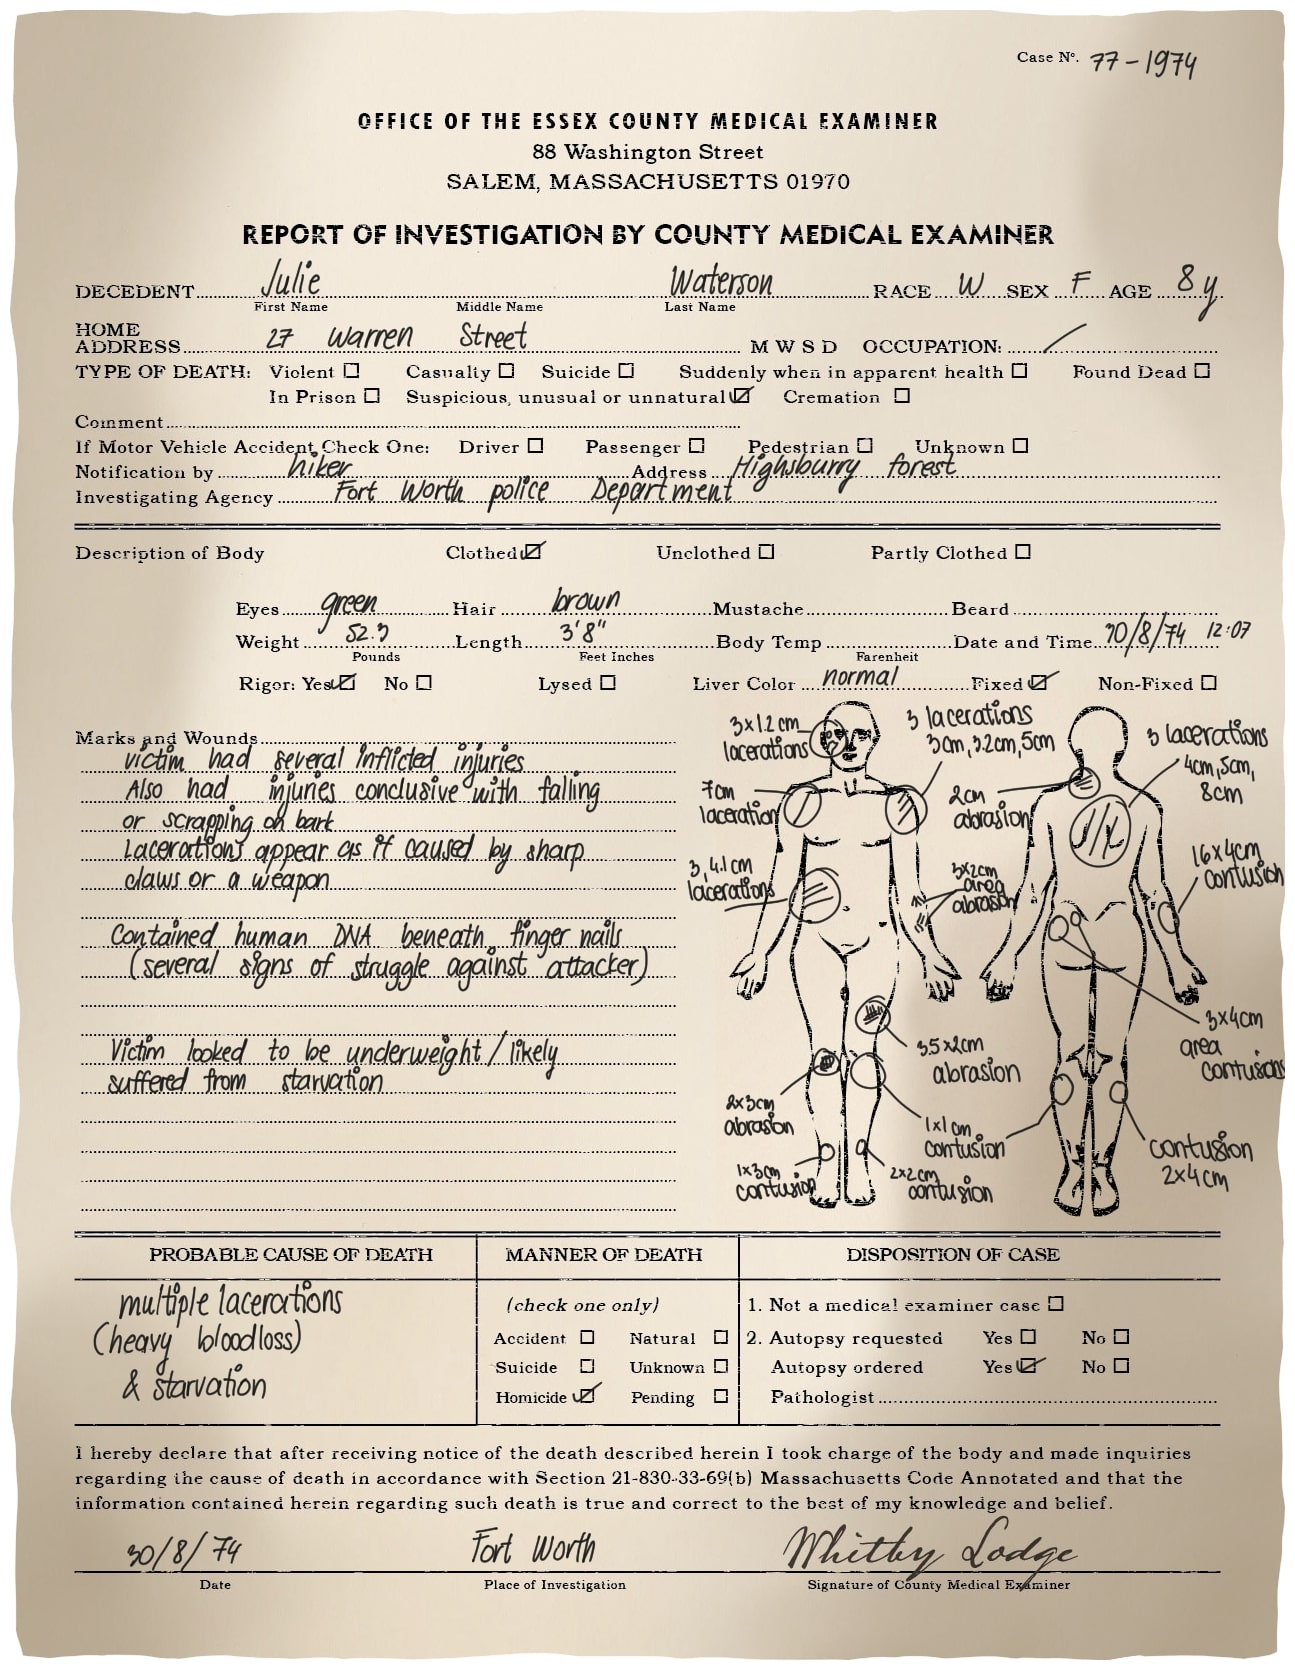 Case Nº. 77-1974
OFFICE OF THE ESSEX COUNTY MEDICAL EXAMINER
88 Washington Street
SALEM, MASSACHUSETTS 01970
REPORT OF INVESTIGATION BY COUNTY MEDICAL EXAMINER
DECEDENT Julie Waterson RACE W SEX F AGE 8y
First Name Middle Name Last Name
HOME
ADDRESS 27 Warren Street M W S D OCCUPATION: /
TYPE OF DEATH: Violent Casualty Suicide Suddenly when in apparent health Found Dead
In Prison Suspicious, unusual or unnatural Cremation
Comment
If Motor Vehicle Accident Check One: Driver Passenger Pedestrian Unknown
Notification by hiker Address Highsburry forest
Investigating Agency Fort Worth police Department
Description of Body Clothed Unclothed Partly Clothed
Eyes green Hair brown Mustache Beard
Weight 52.3 Length 3'8" Body Temp Date and Time 30/8/74 12:07
Pounds Feet Inches Farenheit
Rigor: Yes No Lysed Liver Color normal Fixed Non-Fixed
Marks and Wounds
victim had several inflicted injuries
Also had injuries conclusive with falling
or scrapping on bart
Lacerations appear as if caused by sharp
claws or a weapon
Contained human DNA beneath finger nails
(several signs of struggle against attacker)
Victim looked to be underweight/likely
suffered from starvation
3x1.2cm
lacerations
3 lacerations
3cm, 3.2cm, 5cm
3 lacerations
4cm, 5cm,
8cm
7cm
laceration
2cm
abrasion
3, 4.1cm
lacerations
3x2cm
area
abrasion
16x4cm
contusion
3x4cm
area
contusions
3.5x2cm
abrasion
2x3cm
abrasion
1x1cm
contusion
contusion
2x4cm
1x3cm
contusion
2x2cm
contusion
PROBABLE CAUSE OF DEATH MANNER OF DEATH DISPOSITION OF CASE
multiple lacerations
(heavy bloodloss)
& starvation
(check one only)
Accident Natural
Suicide Unknown
Homicide Pending
1. Not a medical examiner case
2. Autopsy requested Yes No
Autopsy ordered Yes No
Pathologist
I hereby declare that after receiving notice of the death described herein I took charge of the body and made inquiries
regarding the cause of death in accordance with Section 21-830-33-69(b) Massachusetts Code Annotated and that the
information contained herein regarding such death is true and correct to the best of my knowledge and belief.
30/8/74 Fort Worth Whitby Lodge
Date Place of Investigation Signature of County Medical Examiner